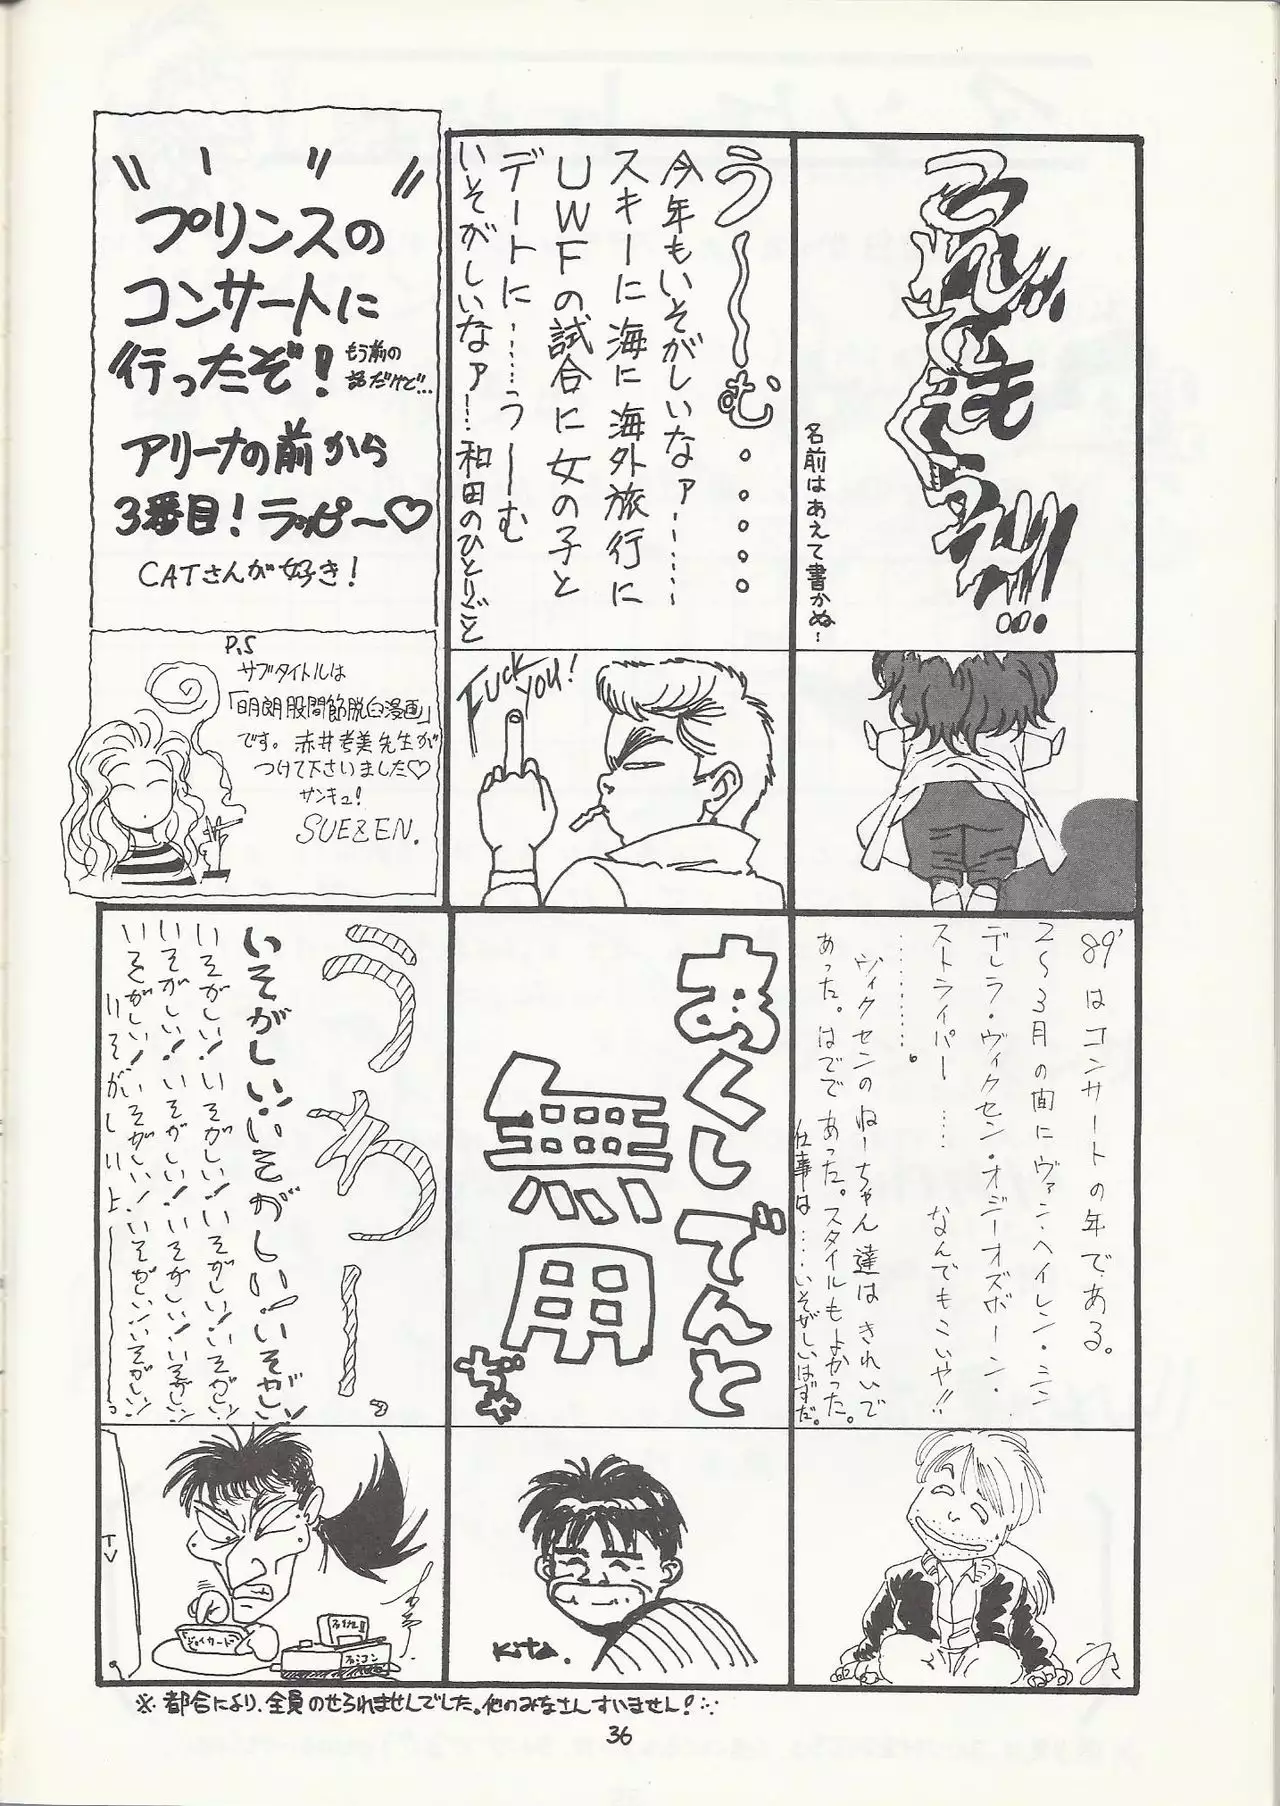 これでもくらえ!!!...
名前はあえて書かぬ!
う〜〜む・・・・・
今年もいそがしいなァ……
スキーに海に海外旅行に
UWFの試合に女の子と
デートに……うーむ
いそがしいなァ… 和田のひとりごと
Fuck YOU!
プリンスの
コンサートに
行ったぞ!
もう前の
話だけど…
アリーナの前から
3番目!ラッピ〜♡
CATさんが好き!
P.S
サブタイトルは
「明朗股間節脱臼漫画」
です。赤井孝美先生が
つけて下さいました♡
サンキュ!
SUEZEN.
89'はコンサートの年である。
2〜3月の間にヴァン・ヘイレン・シン
デレラ・ヴィクセン・オジーオズボーン・
ストライパー…… なんでもこいや!!
………。
ヴィクセンのねーちゃん達はきれいで
あった。はでであった。スタイルもよかった。
仕事は……いそがしいはずだ。
あくしでんと
無用
ぢゃ
うわー。
いそがしい!いそがしい!いそがしい!
いそがしい!いそがしい!いそがしい!いそがしい!
いそがしい!いそがしい!いそがしい!いそがしい!
いそがしい!いそがしい!いそがしい!いそがしい!
いそがしいよー
TV
ジョイカード
ファミコン
Kita.
※都合により、全員のせられませんでした。他のみなさんすいません!
36